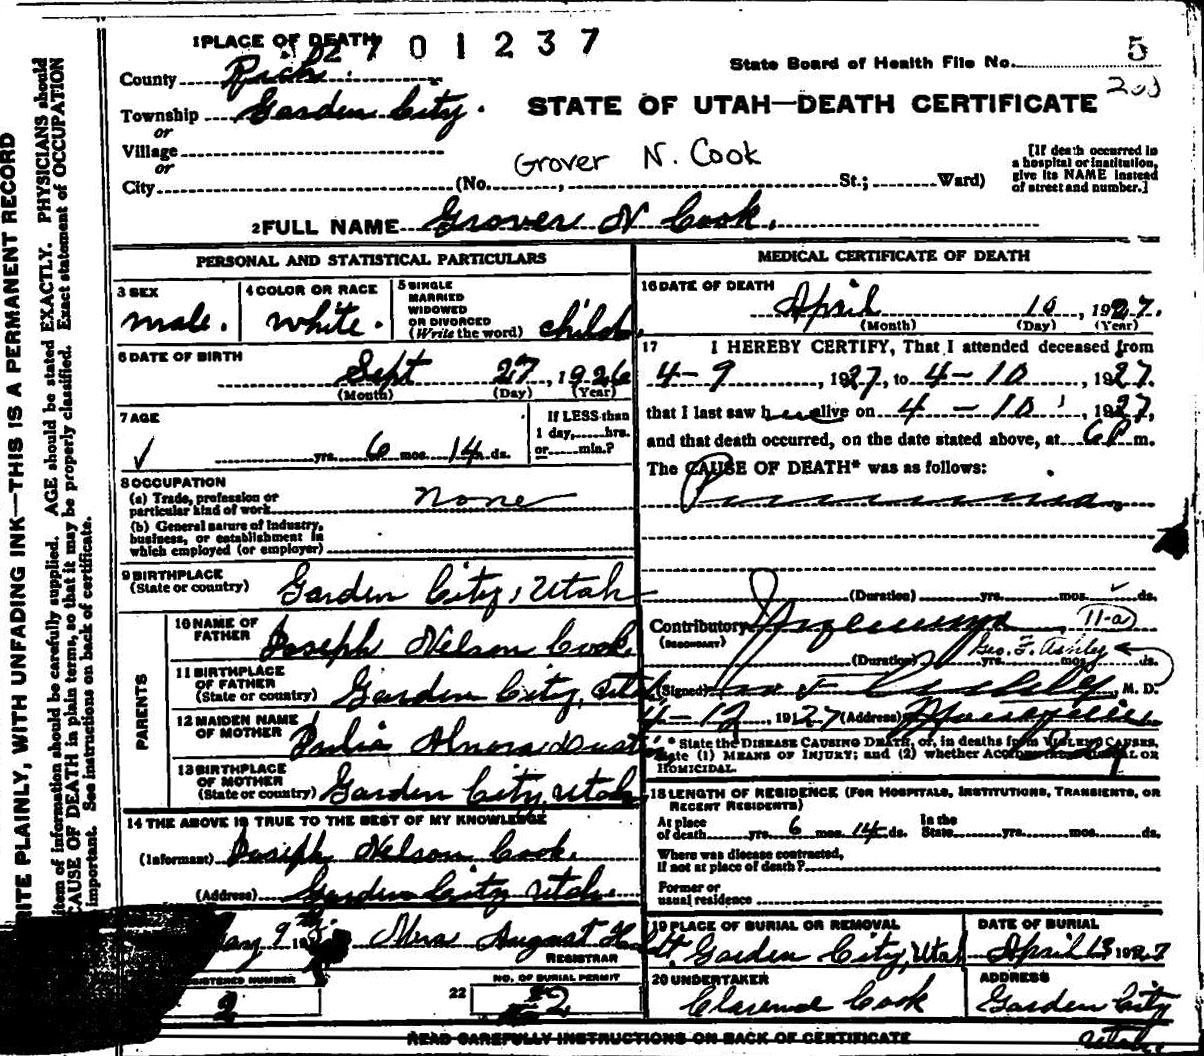 1 PLACE OF DEATH 02 7 0 1 2 3 7
State Board of Health File No. 5
203
County Rich
Township Garden City.
or
Village
or
City (No. , St.; Ward)
STATE OF UTAH—DEATH CERTIFICATE
Grover N. Cook
[If death occurred in
a hospital or institution,
give its NAME instead
of street and number.]
2 FULL NAME Grover N Cook.
PERSONAL AND STATISTICAL PARTICULARS
3 SEX
male.
4 COLOR OR RACE
white.
5 SINGLE
MARRIED
WIDOWED
OR DIVORCED
(Write the word) child.
6 DATE OF BIRTH
Sept 27, 1926
(Month) (Day) (Year)
7 AGE
yrs. 6 mos. 14 ds.
If LESS than
1 day, hrs.
or min.?
8 OCCUPATION
(a) Trade, profession or
particular kind of work none
(b) General nature of Industry,
business, or establishment in
which employed (or employer)
9 BIRTHPLACE
(State or country) Garden City, Utah
PARENTS
10 NAME OF
FATHER Joseph Nelson Cook.
11 BIRTHPLACE
OF FATHER
(State or country) Garden City, Utah
12 MAIDEN NAME
OF MOTHER
13 BIRTHPLACE
OF MOTHER
(State or country) Garden City, Utah
14 THE ABOVE IS TRUE TO THE BEST OF MY KNOWLEDGE
(Informant) Joseph Nelson Cook.
(Address) Garden City Utah.
9 19 Mrs August
REGISTRAR
REGISTERED NUMBER
2
22
NO. OF BURIAL PERMIT
2
MEDICAL CERTIFICATE OF DEATH
16 DATE OF DEATH
April 10, 1927.
(Month) (Day) (Year)
17 I HEREBY CERTIFY, That I attended deceased from
4-9, 1927, to 4-10, 1927.
that I last saw h alive on 4-10, 1927,
and that death occurred, on the date stated above, at 6 P m.
The CAUSE OF DEATH* was as follows:
Pneumonia.
(Duration) yrs. mos. ds.
Contributory 11-a
(SECONDARY)
Geo. F. Ashley
(Duration) yrs. mos. ds.
(Signed) Geo F Ashley, M. D.
4-12, 1927 (Address)
* State the DISEASE CAUSING DEATH, or, in deaths from VIOLENT CAUSES,
state (1) MEANS OF INJURY; and (2) whether ACCIDENTAL, SUICIDAL OR
HOMICIDAL.
18 LENGTH OF RESIDENCE (FOR HOSPITALS, INSTITUTIONS, TRANSIENTS, OR
RECENT RESIDENTS)
At place
of death yrs. 6 mos. 14 ds.
In the
State yrs. mos. ds.
Where was disease contracted,
if not at place of death?
Former or
usual residence
19 PLACE OF BURIAL OR REMOVAL
Garden City, Utah
DATE OF BURIAL
April 13 1927
20 UNDERTAKER
Clarence Cook
ADDRESS
Garden City
Utah.
READ CAREFULLY INSTRUCTIONS ON BACK OF CERTIFICATE
WRITE PLAINLY, WITH UNFADING INK—THIS IS A PERMANENT RECORD
item of information should be carefully supplied. AGE should be stated EXACTLY. PHYSICIANS should
CAUSE OF DEATH in plain terms, so that it may be properly classified. Exact statement of OCCUPATION
important. See instructions on back of certificate.